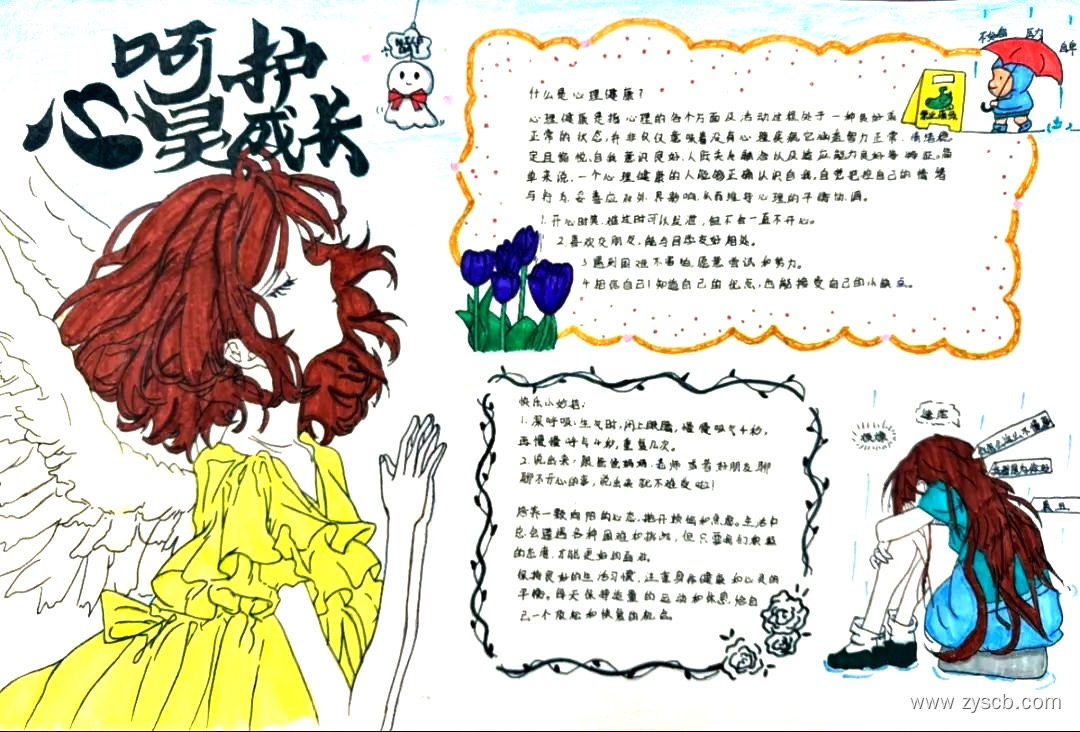 呵护
心灵成长
不如意
压力
自卑
禁止焦虑
什么是心理健康？
心理健康是指心理的各个方面及活动过程处于一种良好或
正常的状态，并非仅仅意味着没有心理疾病它涵盖智力正常、情绪稳
定且愉悦，自我意识良好，人际关系融洽以及适应能力良好等特征。简
单来说，一个心理健康的人能够正确认识自我，自觉把控自己的情绪
与行为，妥善应对外界影响从而维持心理的平衡协调。
1.开心时笑，难过时可以发泄，但不会一直不开心。
2.喜欢交朋友，能与同学友好相处。
3.遇到困难不害怕，愿意尝试和努力。
4.相信自己！知道自己的优点，也能接受自己的小缺点。
快乐小妙招：
1.深呼吸：生气时，闭上眼睛，慢慢吸气4秒，
再慢慢呼气4秒，重复几次。
2.说出来：跟爸爸妈妈、老师或者好朋友聊
聊不开心的事，说出来就不难受啦！
培养一颗向阳的心态，抛开烦恼和焦虑。生活中
总会遭遇各种困难和挑战，但只要我们乐观
的态度，才能更好的面对。
保持良好的生活习惯，注重身体健康和心灵的
平衡。每天保持适量的运动和休息，给自
己一个放松和恢复的机会。
焦虑
烦躁
www.zyscb.com